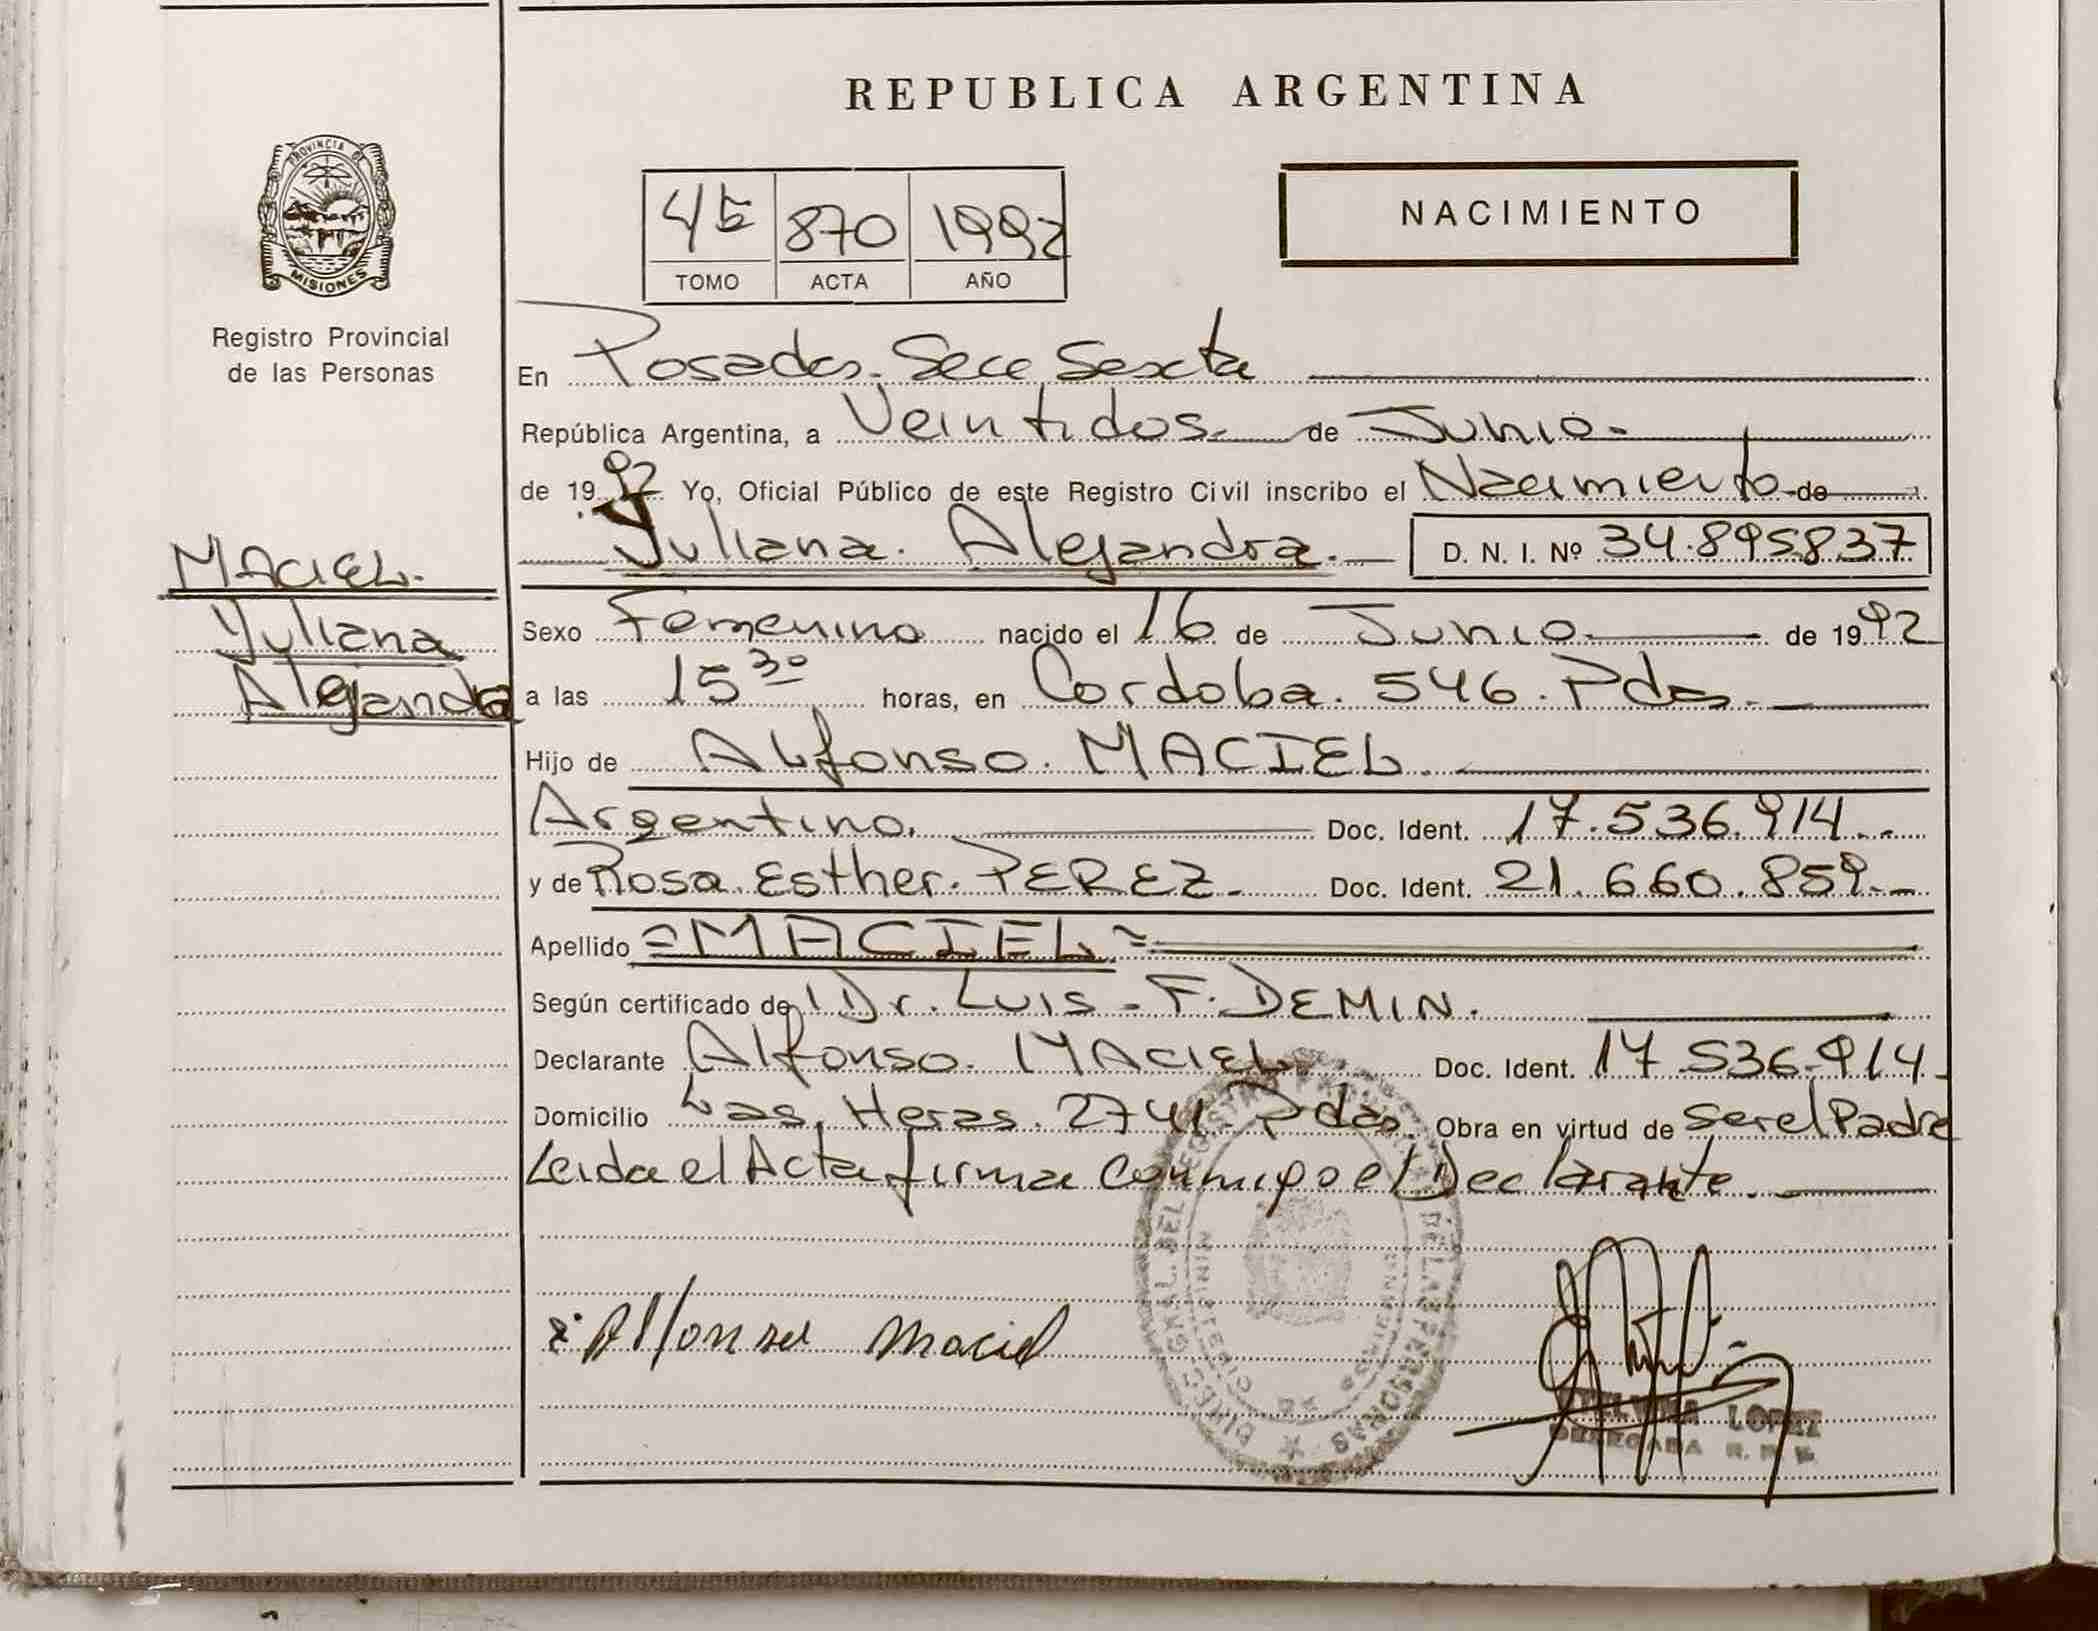 REPUBLICA ARGENTINA
PROVINCIA DE
MISIONES
Registro Provincial
de las Personas
45 870 1992
TOMO ACTA AÑO
NACIMIENTO
En Posadas. Secc Sexta
República Argentina, a Veintidos de Junio.
de 1992 Yo, Oficial Público de este Registro Civil inscribo el Nacimiento de
Yuliana. Alejandra. D. N. I. Nº 34.895837
MACIEL.
Yuliana
Alejandra
Sexo Femenino nacido el 16 de Junio de 1992
a las 15 30 horas, en Cordoba. 546. Pdas.
Hijo de Alfonso. MACIEL.
Argentino. Doc. Ident. 17.536.914..
y de Rosa. Esther. PEREZ. Doc. Ident. 21.660.859.
Apellido =MACIEL=
Según certificado de Dr. Luis. F. DEMIN.
Declarante Alfonso. MACIEL Doc. Ident. 17.536.914.
Domicilio Las Heras. 2741. Pdas. Obra en virtud de ser el Padre
Leida el Acta firma Conmigo el Declarante.
Alfonso Maciel
DIREC. GRAL. DEL REGISTRO DE LAS PERSONAS
MISIONES
LOPEZ